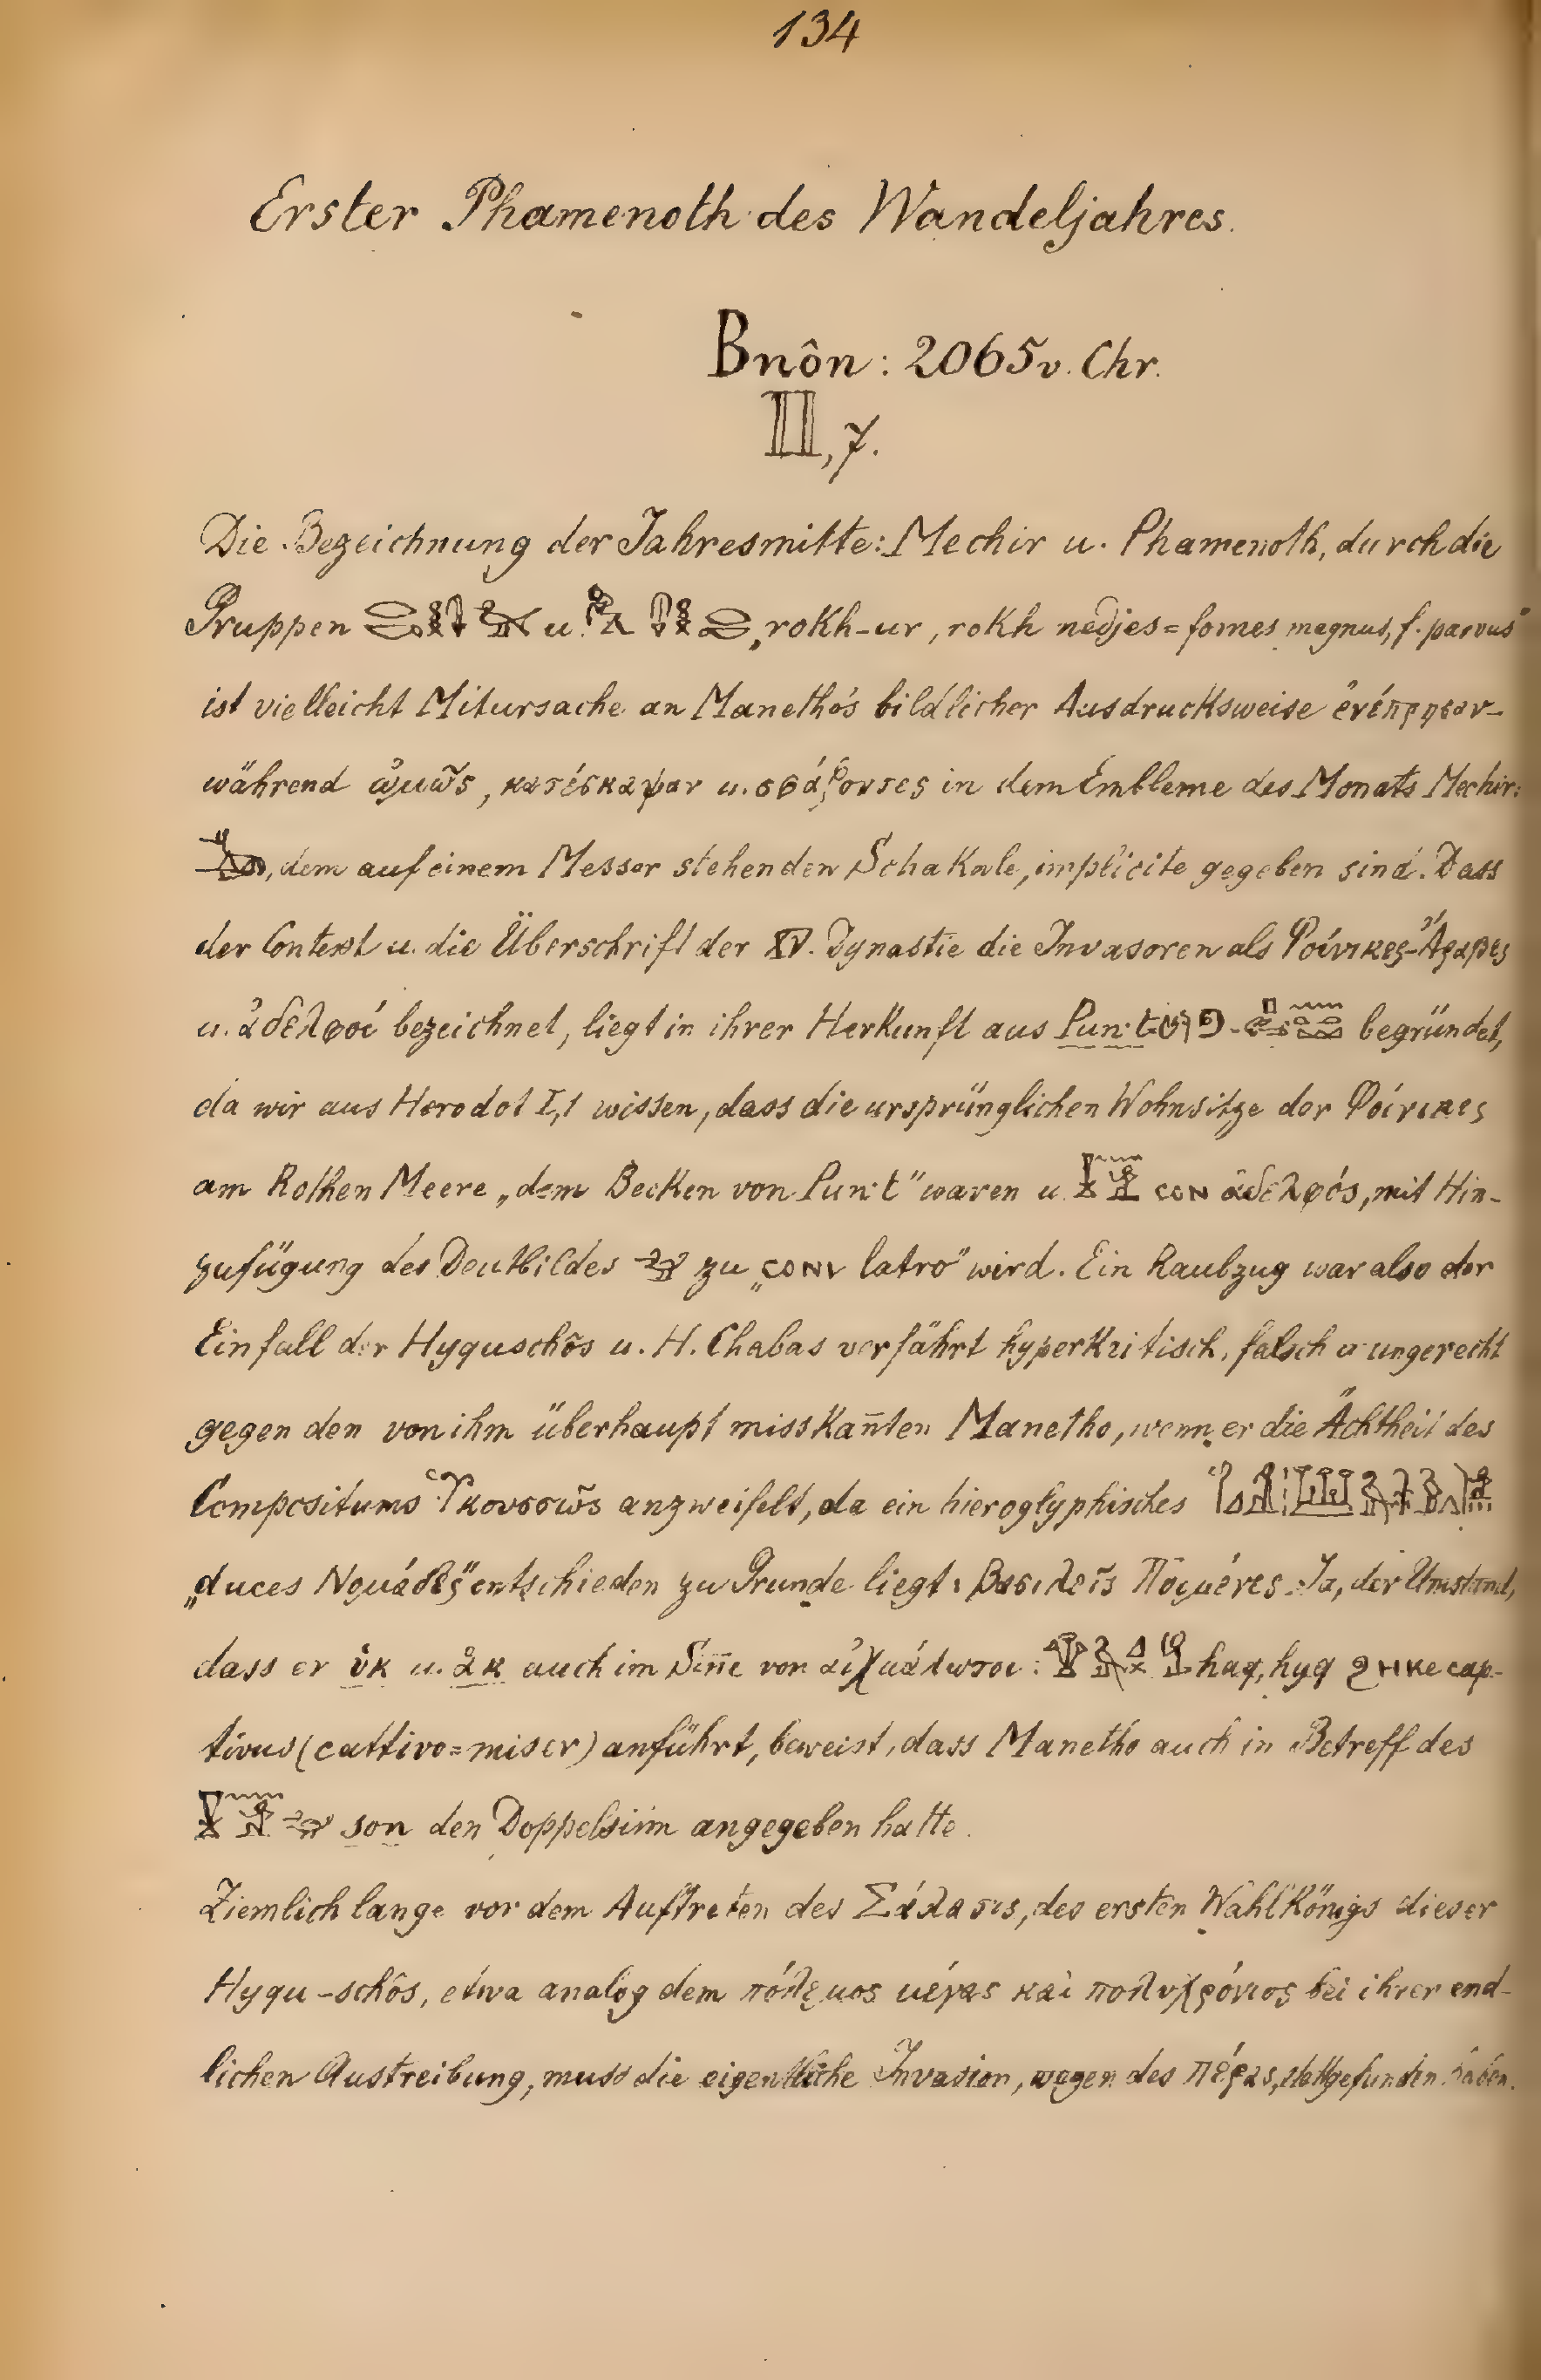 134
Erster Phamenoth des Wandeljahres.
Bnôn: 2065 v. Chr.
II, 7.
Die Bezeichnung der Jahresmitte: Mechir u. Phamenoth, durch die
Gruppen u. „rokh-ur, rokh nedjes = fomes magnus, f. parvus"
ist vielleicht Mitursache an Manetho's bildlicher Ausdrucksweise ἐνέπρησαν–
während ὠμῶς, κατέσκαψαν u. σφάζοντες in dem Embleme des Monats Mechir:
, dem auf einem Messer stehenden Schakale, implicite gegeben sind. Dass
der Context u. die Überschrift der XV. Dynastie die Invasoren als Φοίνικες-Ἄραβες
u. ἀδελφοί bezeichnet, liegt in ihrer Herkunft aus Pun·t- begründet,
da wir aus Herodot I,1 wissen, dass die ursprünglichen Wohnsitze der Φοίνικες
am Rothen Meere „dem Becken von Pun·t" waren u. ⲥⲟⲛ ἀδελφός, mit Hin-
zufügung des Deutbildes zu „ⲥⲟⲛⲓ latro" wird. Ein Raubzug war also der
Einfall der Hyquschôs u. H. Chabas verfährt hyperkritisch, falsch u. ungerecht
gegen den von ihm überhaupt misskan̄ten Manetho, wenn er die Ächtheit des
Compositums Ὑκουσσῶς anzweifelt, da ein hieroglyphisches
„duces Νομάδες" entschieden zu Grunde liegt: Βασιλεῖς Ποιμένες. Ja, der Umstand,
dass er ὑκ u. ἁκ auch im Sin̄e von αἰχμάλωτοι: haq, hyq ϩⲏⲕⲉ cap-
tivus (cattivo = miser) anführt, beweist, dass Manetho auch in Betreff des
son den Doppelsinn angegeben hatte.
Ziemlich lange vor dem Auftreten des Σάλατις, des ersten Wahlkönigs dieser
Hyqu-schôs, etwa analog dem πόλεμος μέγας καὶ πολυχρόνιος bei ihrer end-
lichen Austreibung, muss die eigentliche Invasion, wegen des πέρας, stattgefunden haben.